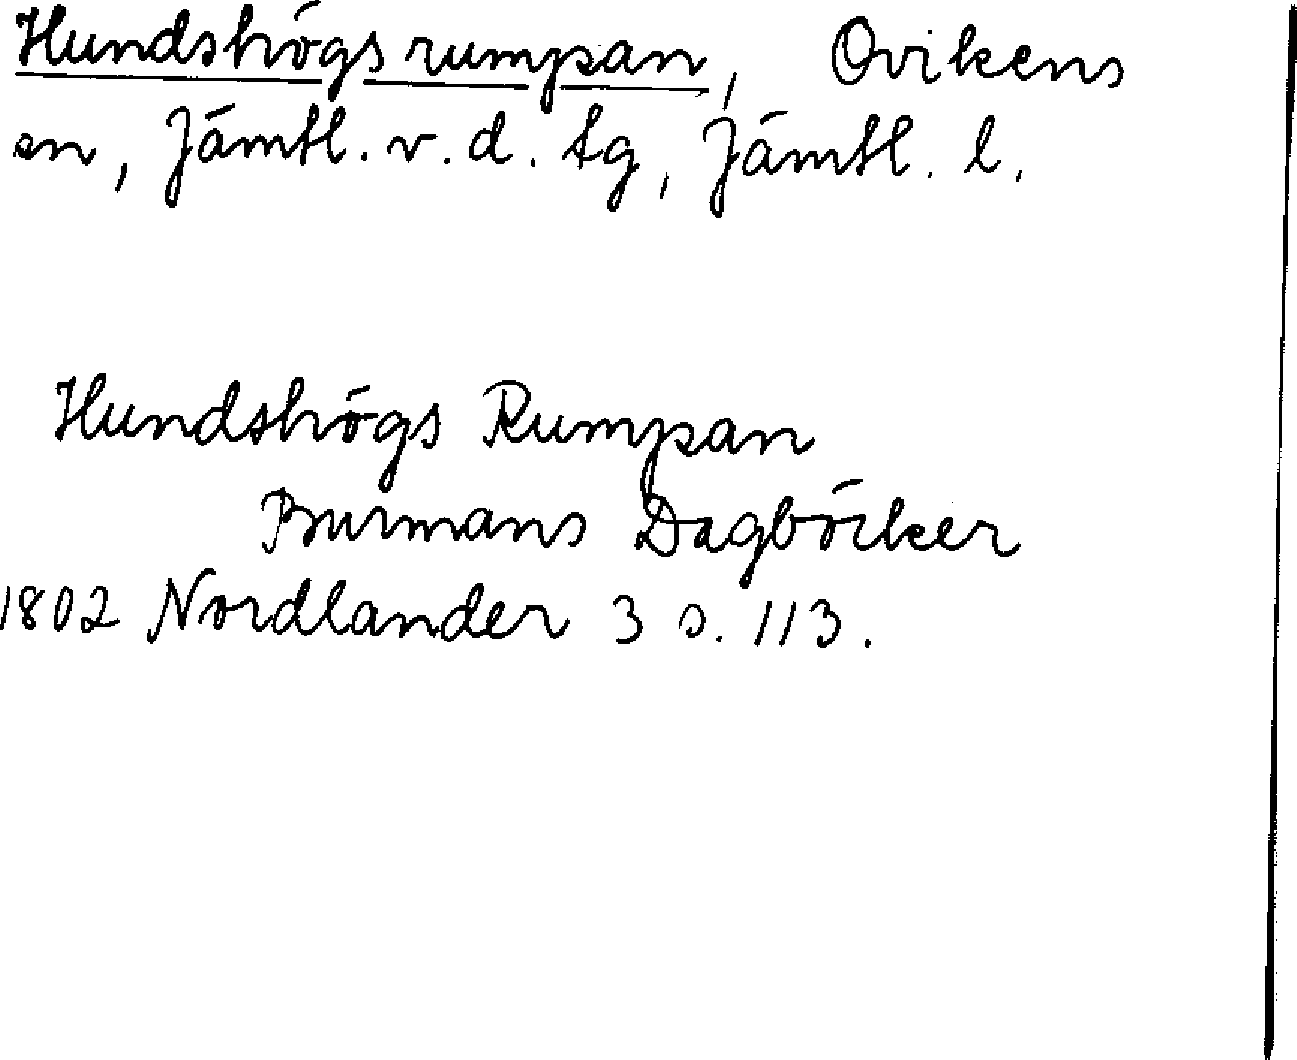 Hundshögsrumpan, Ovikens
sn, Jämtl. v. d. tg, Jämtl. l.
Hundshögs Rumpan
Burmans Dagböcker
1802 Nordlander 3 s. 113.